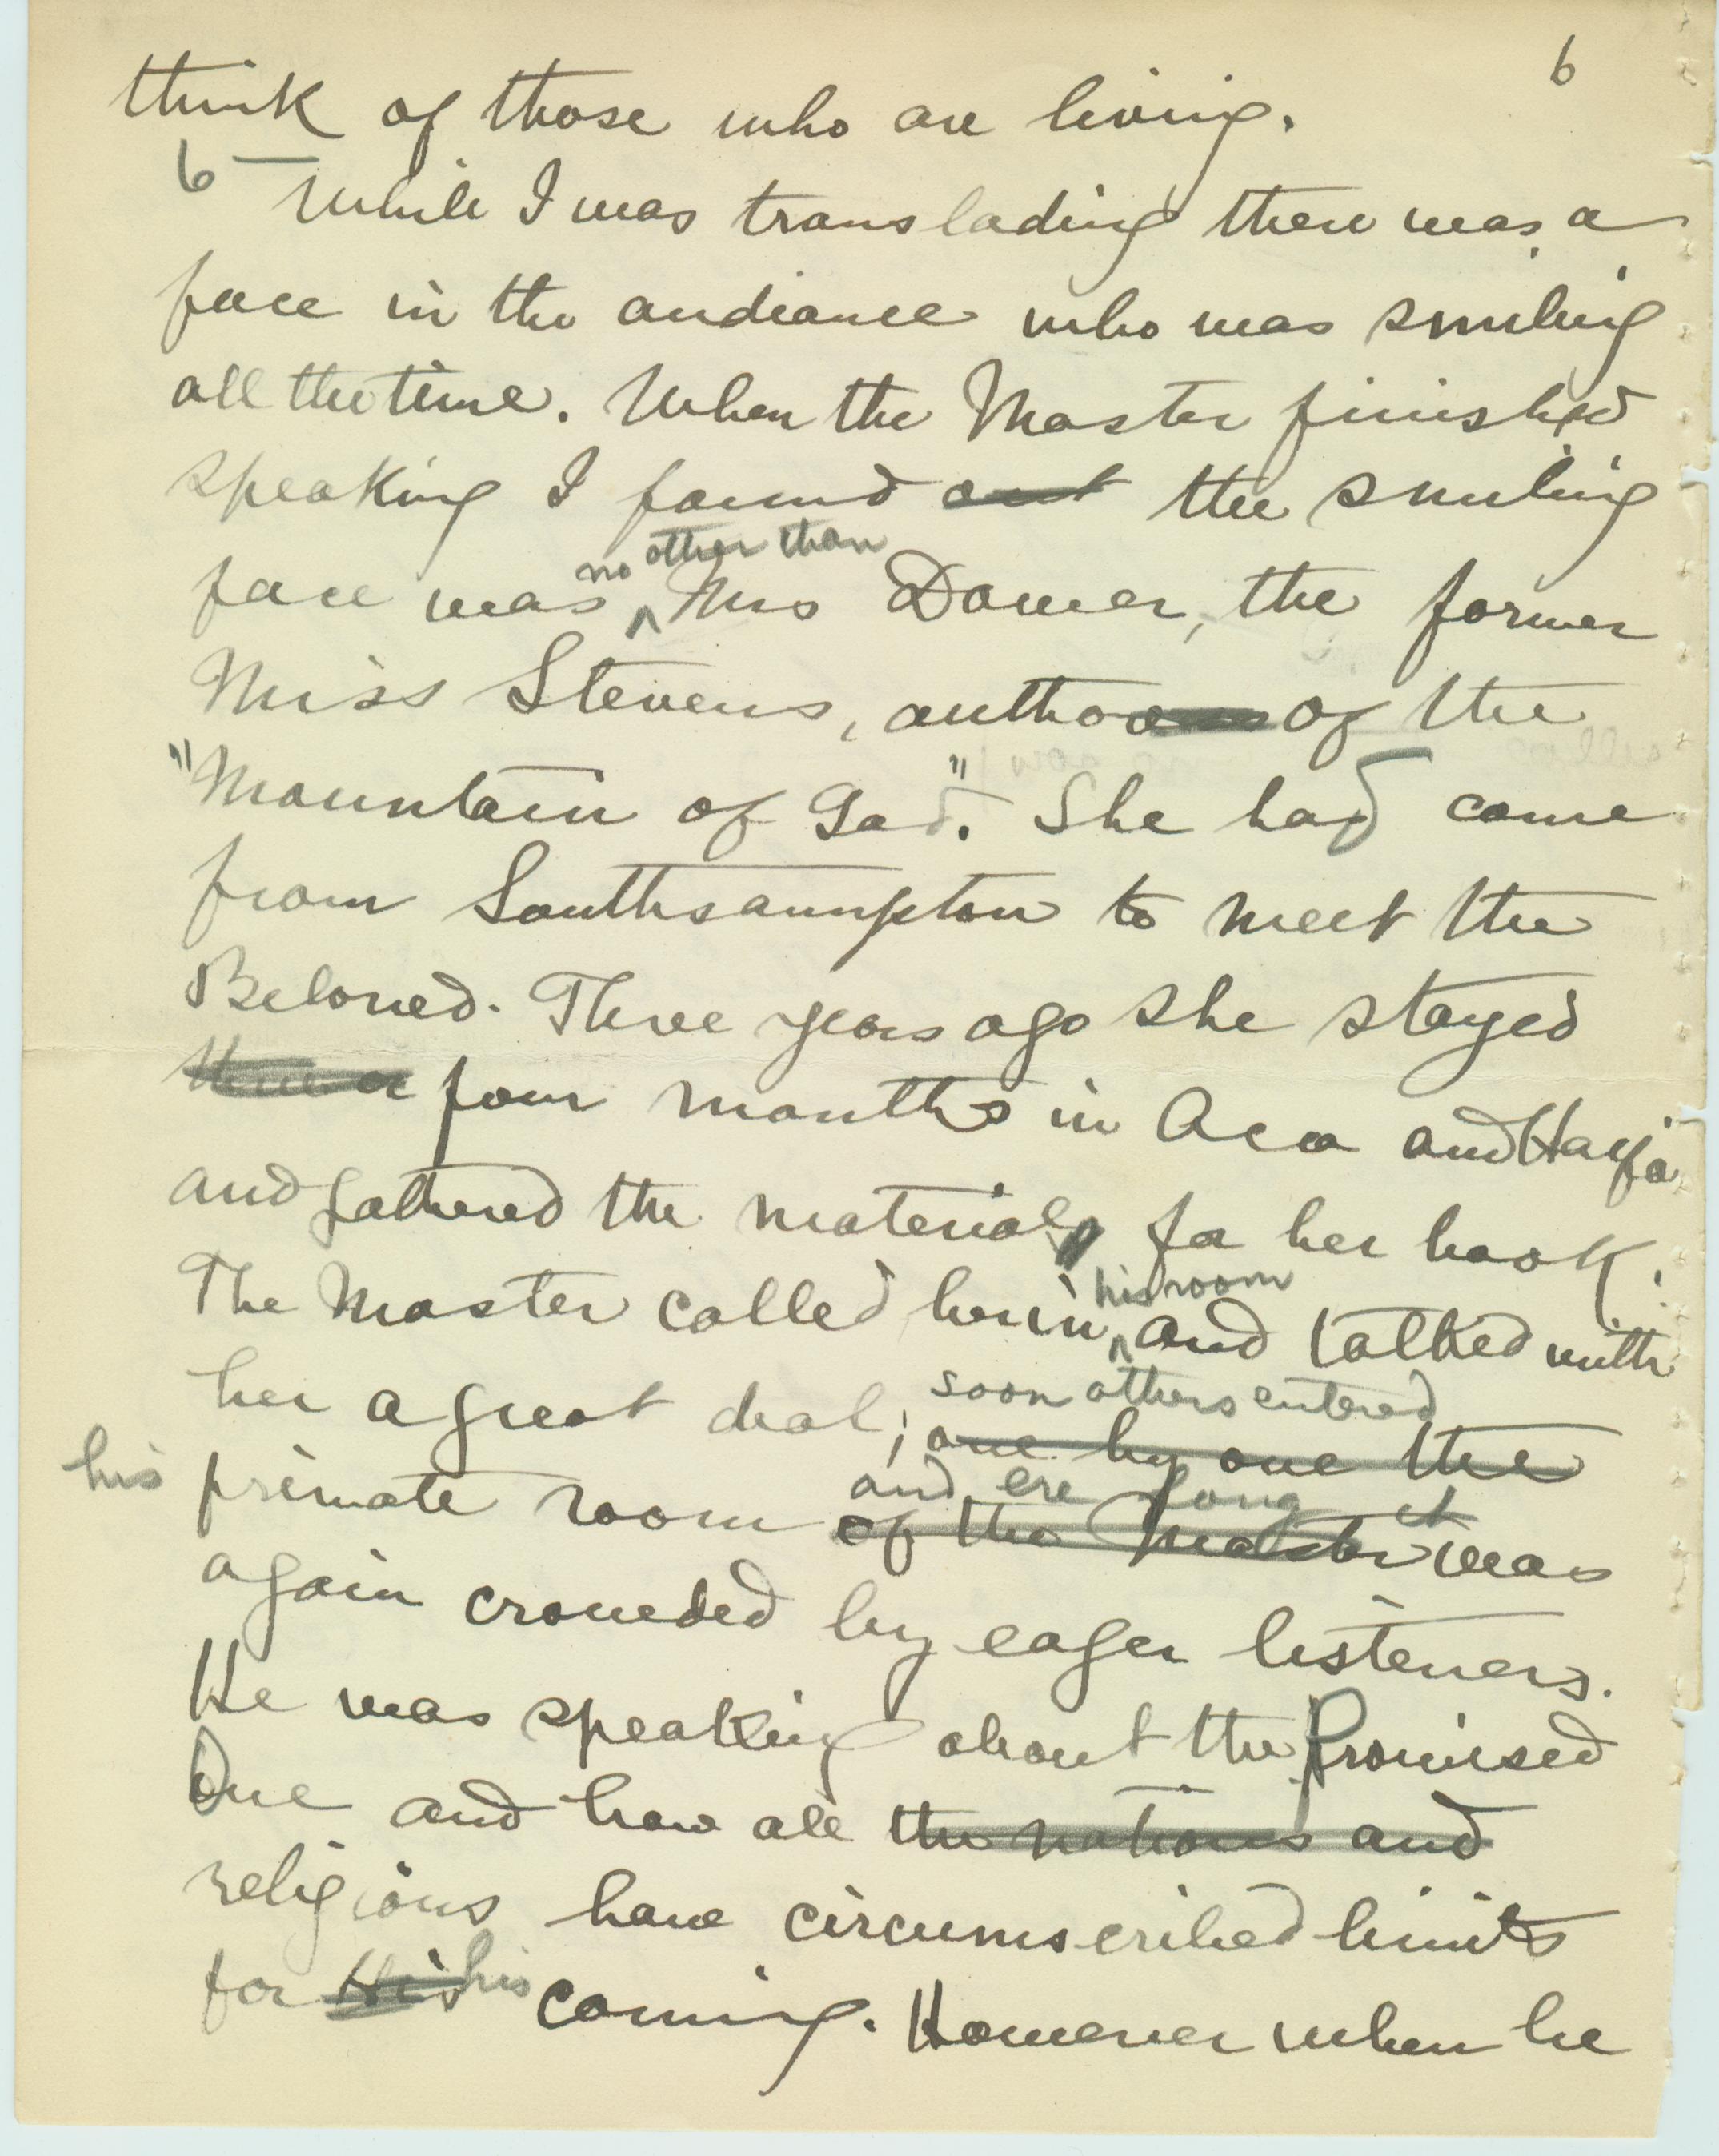 6
think of those who are living.
6 — While I was translading there was a
face in the audiance who was smiling
all the time. When the Master finished
speaking I found out the smiling
no other than
face was ^ Mrs Domer, the former
Miss Stevens, author of the
"Mountain of God". She had come
from Southsaumpton to meet the
Beloved. Three years ago she stayed
three or four months in Aca and Hayfa
and gathered the material for her book.
his room
The Master called her in ^ and talked with
her a great deal;
soon others entered
one by one the
his private room
and ere long it
of the Master was
again crowded by eager listeners.
He was speaking about the Promised
One and how all the nations and
religions have circumscribed limits
for His his coming. However when he